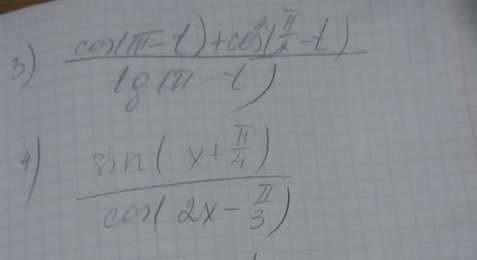 3) cos(π-t)+cos²(π/2-t)
tg(π-t)
4) sin(x+π/4)
cos(2x-π/3)